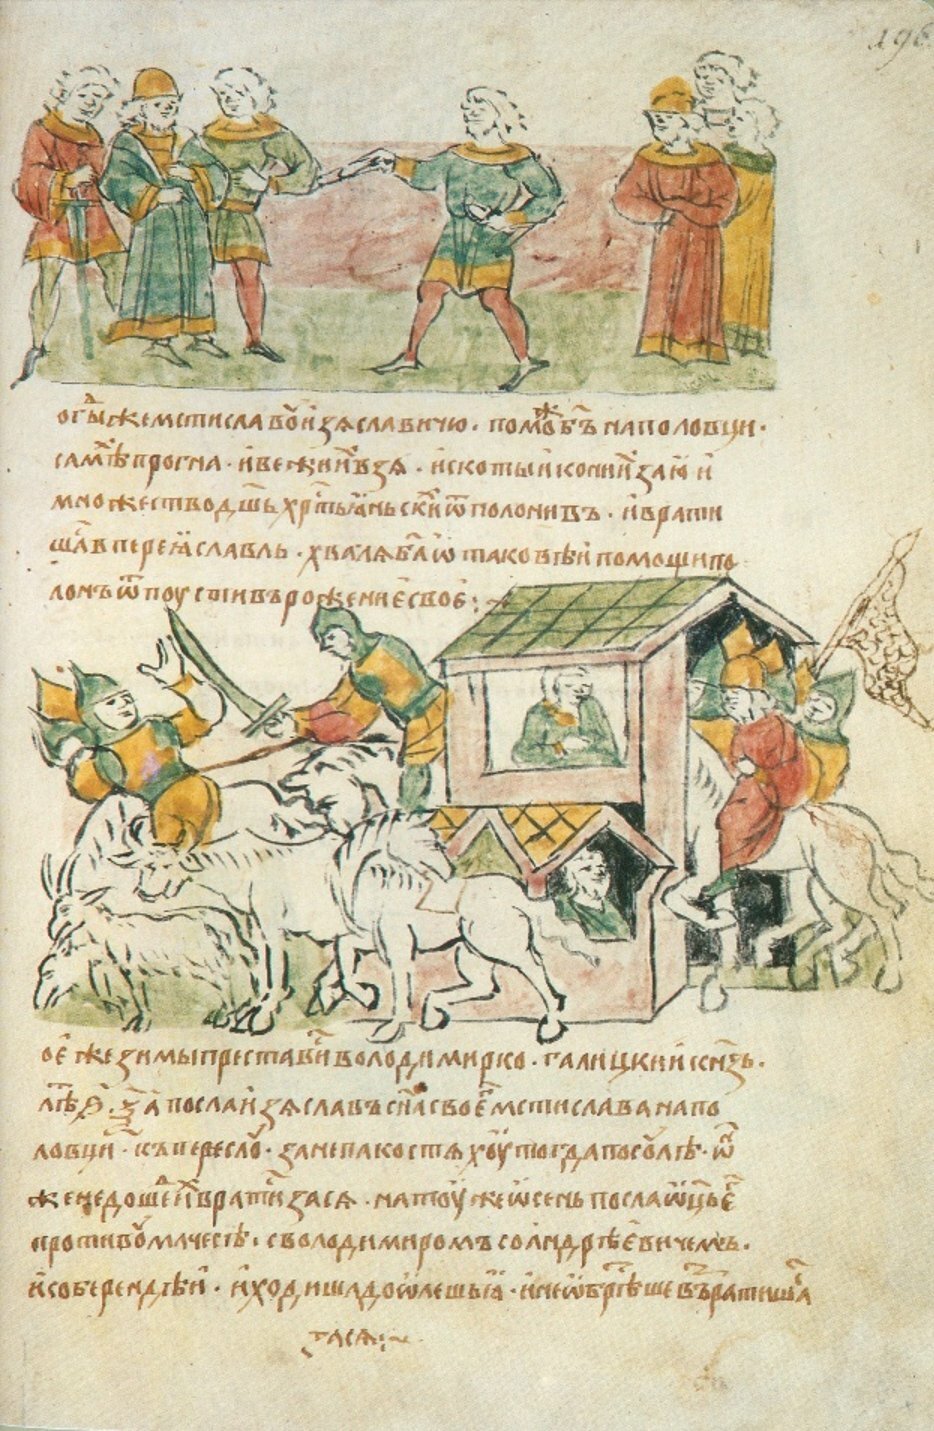 196
огды же мстиславоу изяславичю · поможе бъ на половци ·
самѣ прогна · и веже ихъ взя · и скоты и кони ихъ зая и
множество дшь хрстьяньскы ѿполонивъ · и врати
шася въ переяславль · хваля ба ѡ таковѣи помощи по
лонъ ѿпоусти въ рожение свое :~
ое же зимы преставися володимирко · галицкии князь ·
лѣ҃ посла изяславъ сна своего мстислава на по
ловци · къ переслоу · зане пакостяхоу тогда по соулѣ · ѡн
же не дошед ихъ врати зася · на тоу же ѡсень посла ѡць е
противоу мачесѣ · с володимиромъ со андрѣевичемъ ·
и со берендѣи · и ходиша до ѡлешья · и не ѡбрѣтше въвратишася
зася :~